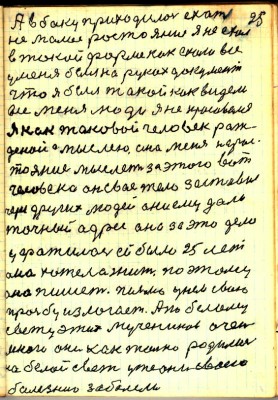 25
А в баку приходилос ехат
не малое ростояние я не ехал
в такой форме как ехали все
у меня были на руках документ
что я был такой как видем
все меня люди я не нравился
Я как таковой человек раж
деной с мыслею, она меня
тояние мыслет за этого вот
человека он свае тело заставил
через других людей она ему дала
точный адрес она за это дело
ухватилас ей было 25 лет
она хотела жит, поэтому
она пишет. писмо у ней свою
прозбу излогает. А по белому
свету этих мучеников очен
много они как только родилис
на белой свет уже они своею
болезнию заболели